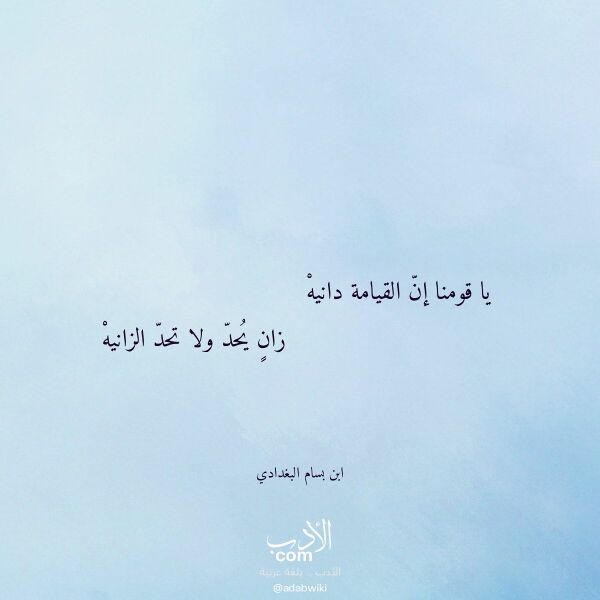 يا قومنا إنّ القيامة دانيهْ
زانٍ يُحدّ ولا تحدّ الزانيهْ
ابن بسام البغدادي
الأدب
com
الأدب .. بلغة عربية
@adabwiki